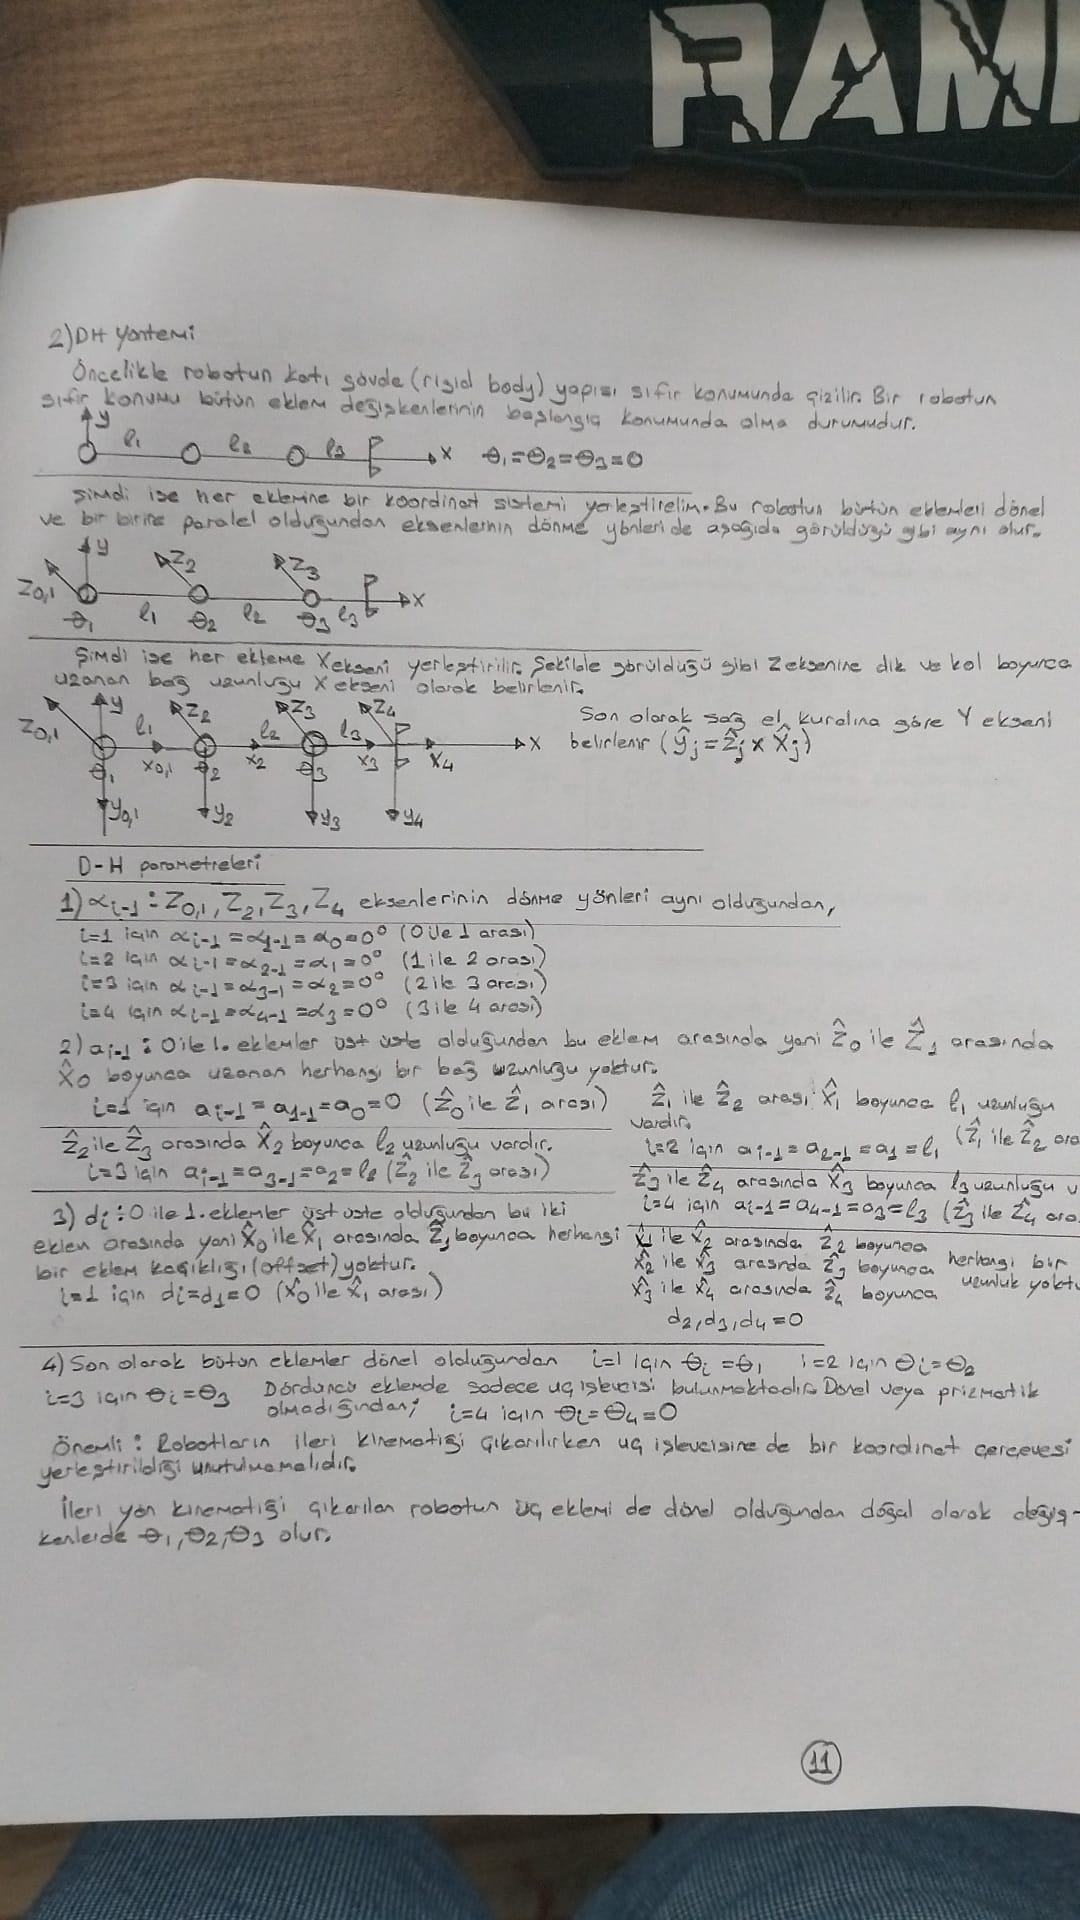 RAM
2) DH Yöntemi
Öncelikle robotun katı gövde (rigid body) yapısı sıfır konumunda çizilir. Bir robotun
sıfır konumu bütün eklem değişkenlerinin başlangıç konumunda olma durumudur.
y l₁ l₂ l₃ x θ₁=θ₂=θ₃=0
Şimdi ise her eklemine bir koordinat sistemi yerleştirelim. Bu robotun bütün eklemleri dönel
ve bir birine paralel olduğundan eksenlerinin dönme yönleri de aşağıda görüldüğü gibi aynı olur.
y Z₂ Z₃
Z₀,₁ x
θ₁ l₁ θ₂ l₂ θ₃ l₃
Şimdi ise her ekleme X ekseni yerleştirilir. Şekilde görüldüğü gibi Z eksenine dik ve kol boyunca
uzanan bağ uzunluğu X ekseni olarak belirlenir.
y Z₂ Z₃ Z₄
Z₀,₁ l₁ l₂ l₃ X
θ₁ X₀,₁ θ₂ X₂ θ₃ X₃ X₄
Y₀,₁ Y₂ Y₃ Y₄
Son olarak sağ el kuralına göre Y ekseni
belirlenir (Ŷj = Ẑj x X̂j)
D-H parametreleri
1) αi-1 : Z₀,₁, Z₂, Z₃, Z₄ eksenlerinin dönme yönleri aynı olduğundan,
i=1 için αi-1 = α1-1 = α₀ = 0° (0 ile 1 arası)
i=2 için αi-1 = α2-1 = α₁ = 0° (1 ile 2 arası)
i=3 için αi-1 = α3-1 = α₂ = 0° (2 ile 3 arası)
i=4 için αi-1 = α4-1 = α₃ = 0° (3 ile 4 arası)
2) ai-1 : 0 ile 1. eklemler üst üste olduğundan bu eklem arasında yani Ẑ₀ ile Ẑ₁ arasında
X̂₀ boyunca uzanan herhangi bir bağ uzunluğu yoktur.
i=1 için ai-1 = a1-1 = a₀ = 0 (Ẑ₀ ile Ẑ₁ arası)
Ẑ₁ ile Ẑ₂ arası X̂₁ boyunca l₁ uzunluğu
vardır.
i=2 için ai-1 = a2-1 = a₁ = l₁ (Ẑ₁ ile Ẑ₂ ara
Ẑ₂ ile Ẑ₃ arasında X̂₂ boyunca l₂ uzunluğu vardır.
i=3 için ai-1 = a3-1 = a₂ = l₂ (Ẑ₂ ile Ẑ₃ arası)
Ẑ₃ ile Ẑ₄ arasında X̂₃ boyunca l₃ uzunluğu v
i=4 için ai-1 = a4-1 = a₃ = l₃ (Ẑ₃ ile Ẑ₄ ara
3) di : 0 ile 1. eklemler üst üste olduğundan bu iki
eklem arasında yani X̂₀ ile X̂₁ arasında Ẑ₁ boyunca herhangi
bir eklem kaçıklığı (offset) yoktur.
i=1 için di = d₁ = 0 (X̂₀ ile X̂₁ arası)
X̂₁ ile X̂₂ arasında Ẑ₂ boyunca
X̂₂ ile X̂₃ arasında Ẑ₃ boyunca herhangi bir
X̂₃ ile X̂₄ arasında Ẑ₄ boyunca uzunluk yoktu
d₂, d₃, d₄ = 0
4) Son olarak bütün eklemler dönel olduğundan i=1 için θi = θ₁ i=2 için θi = θ₂
i=3 için θi = θ₃ Dördüncü eklemde sadece uç işlevcisi bulunmaktadır. Dönel veya prizmatik
olmadığından; i=4 için θi = θ₄ = 0
Önemli : Robotların ileri kinematiği çıkarılırken uç işlevcisine de bir koordinat çerçevesi
yerleştirildiği unutulmamalıdır.
İleri yön kinematiği çıkarılan robotun üç eklemi de dönel olduğundan doğal olarak değiş-
kenlerde θ₁, θ₂, θ₃ olur.
11